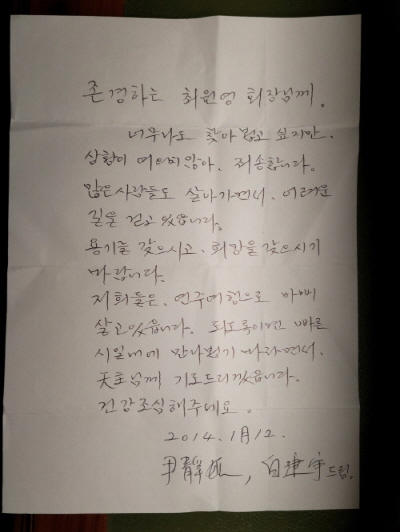 존경하는 최원영 회장님께.
너무나도 찾아뵙고 싶지만.
상황이 여의치않아, 죄송합니다.
많은사람들도 살아가면서, 어려운
길을 걷고있습니다.
용기를 갖으시고, 희망을 갖으시기
바랍니다.
저희들은, 연주여행으로 바삐
살고있읍니다. 되도록이면 빠른
시일내에 만나뵙기 바라면서,
天主님께 기도드리겠읍니다.
건강조심해주세요.
2014.1月12.
尹靜姬, 白建宇드림.